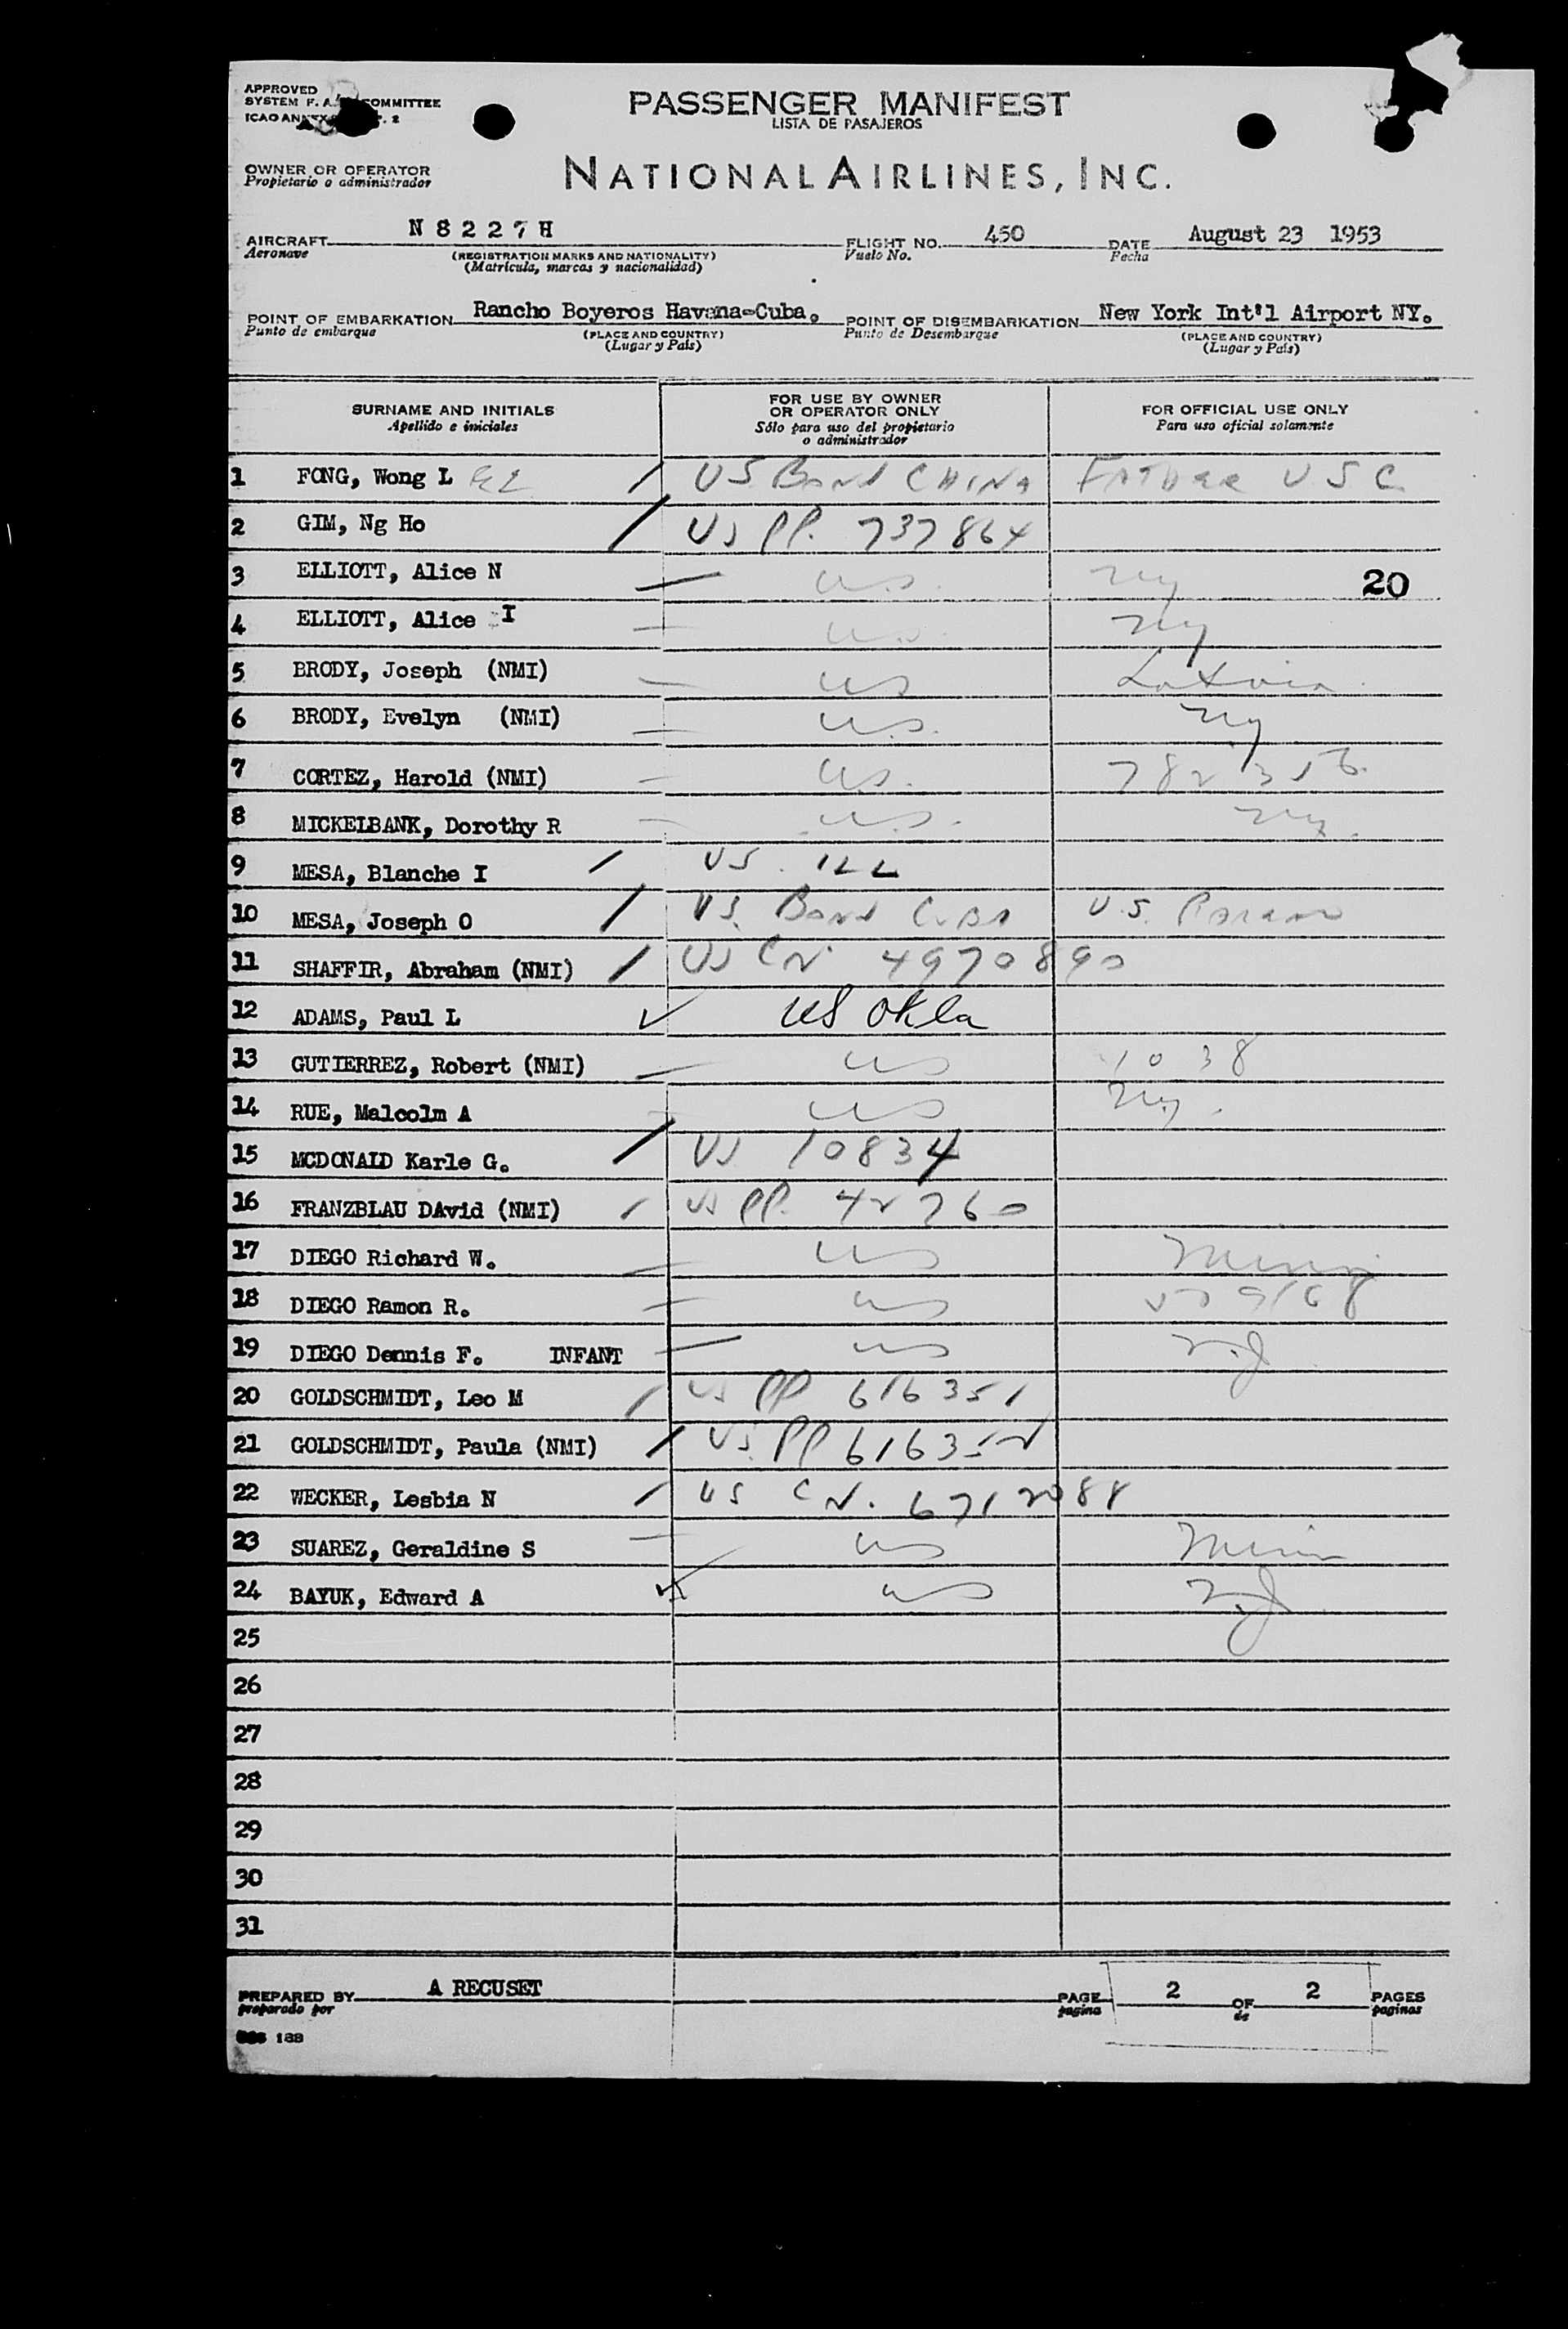 APPROVED
SYSTEM F. A. COMMITTEE
ICAO ANNEX 2
PASSENGER MANIFEST
LISTA DE PASAJEROS
OWNER OR OPERATOR
Propietario o administrador
NATIONAL AIRLINES, INC.
AIRCRAFT N 8 2 2 7 H FLIGHT NO. 450 DATE August 23 1953
Aeronave (REGISTRATION MARKS AND NATIONALITY) Vuelo No. Fecha
(Matrícula, marcas y nacionalidad)
POINT OF EMBARKATION Rancho Boyeros Havana-Cuba. POINT OF DISEMBARKATION New York Int'l Airport NY.
Punto de embarque (PLACE AND COUNTRY) Punto de Desembarque (PLACE AND COUNTRY)
(Lugar y País) (Lugar y País)
SURNAME AND INITIALS FOR USE BY OWNER OR OPERATOR ONLY FOR OFFICIAL USE ONLY
Apellido e iniciales Sólo para uso del propietario o administrador Para uso oficial solamente
1 FONG, Wong L US Born CHINA FATHER USC
2 GIM, Ng Ho US PP. 737864
3 ELLIOTT, Alice N U.S. NY 20
4 ELLIOTT, Alice I U.S. NY
5 BRODY, Joseph (NMI) US Latvia
6 BRODY, Evelyn (NMI) U.S. NY
7 CORTEZ, Harold (NMI) U.S.
8 MICKELBANK, Dorothy R U.S. NY.
9 MESA, Blanche I US. ILL
10 MESA, Joseph O US Born CUBA U.S.
11 SHAFFIR, Abraham (NMI) US CN 4970890
12 ADAMS, Paul L US Okla
13 GUTIERREZ, Robert (NMI) US 1038
14 RUE, Malcolm A US NY.
15 MCDONALD Karle G. US 10834
16 FRANZBLAU DAvid (NMI) US PP. 42760
17 DIEGO Richard W. US
18 DIEGO Ramon R. US
19 DIEGO Dennis F. INFANT US N.J
20 GOLDSCHMIDT, Leo M US PP 616351
21 GOLDSCHMIDT, Paula (NMI) US PP 616352
22 WECKER, Lesbia N US CN. 6712088
23 SUAREZ, Geraldine S US
24 BAYUK, Edward A US N.J
25
26
27
28
29
30
31
PREPARED BY A RECUSET PAGE 2 OF 2 PAGES
preparado por pagina de paginas
188